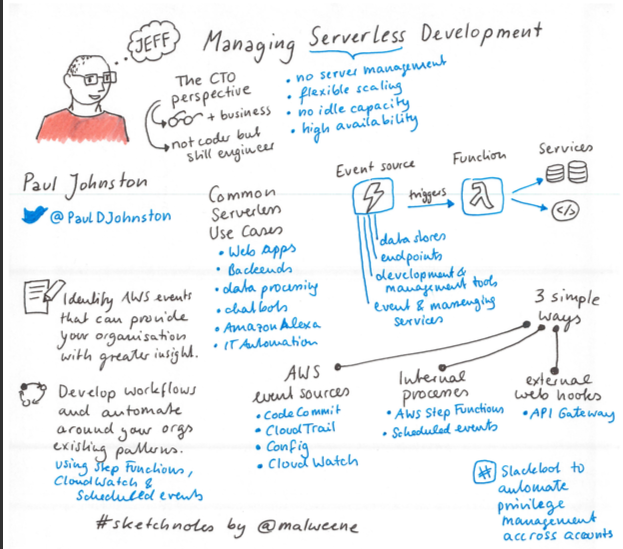 JEFF
Managing Serverless Development
The CTO
perspective
+ business
not coder but
still engineer
• no server management
• flexible scaling
• no idle capacity
• high availability
Paul Johnston
@PaulDJohnston
Common
Serverless
Use Cases
• Web apps
• Backends
• data processing
• chatbots
• Amazon Alexa
• IT Automation
Event source
triggers
Function
λ
Services
</>
data stores
endpoints
development &
management tools
event & messenging
services
Identify AWS events
that can provide
your organisation
with greater insight.
Develop workflows
and automate
around your orgs
existing patterns.
using Step Functions,
CloudWatch &
Scheduled events
3 simple
ways
AWS
event sources
• CodeCommit
• CloudTrail
• Config
• CloudWatch
Internal
processes
• AWS Step Functions
• Scheduled events
external
web hooks
• API Gateway
# Slackbot to
automate
privilege
management
accross accounts
#sketchnotes by @malweene